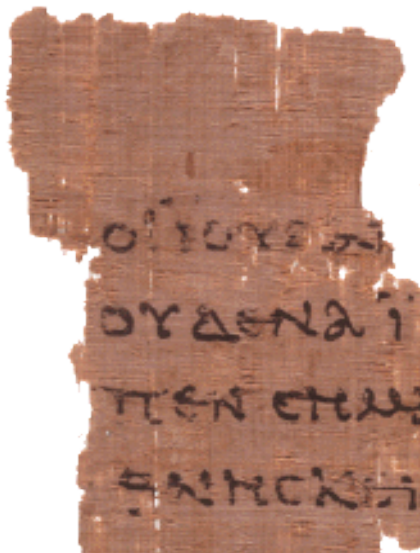 ΟΙ ΙΟΥΔΑΙ
ΟΥΔΕΝΑ Ϊ
ΠΕΝ CΗΜΑ
ΘΝΗCΚΕΙ